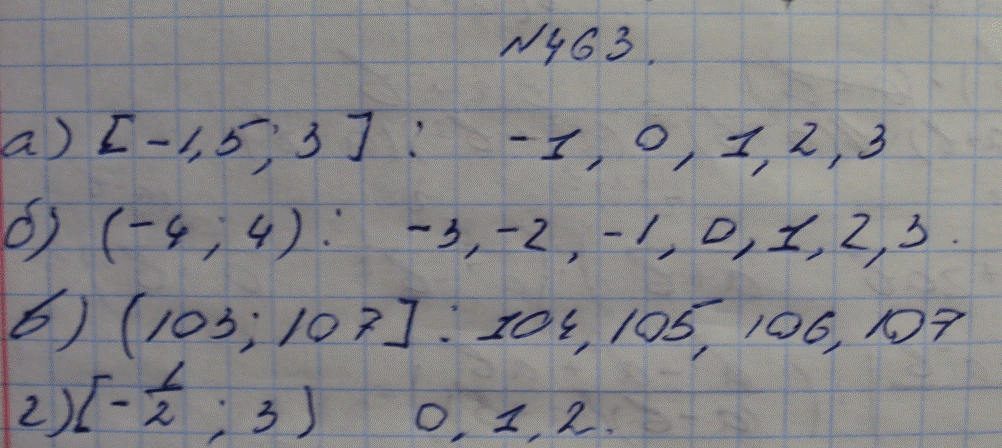 №463.
а) [-1,5; 3] : -1, 0, 1, 2, 3
б) (-4; 4) : -3, -2, -1, 0, 1, 2, 3.
в) (103; 107] : 104, 105, 106, 107
г) [-1/2; 3) 0, 1, 2.